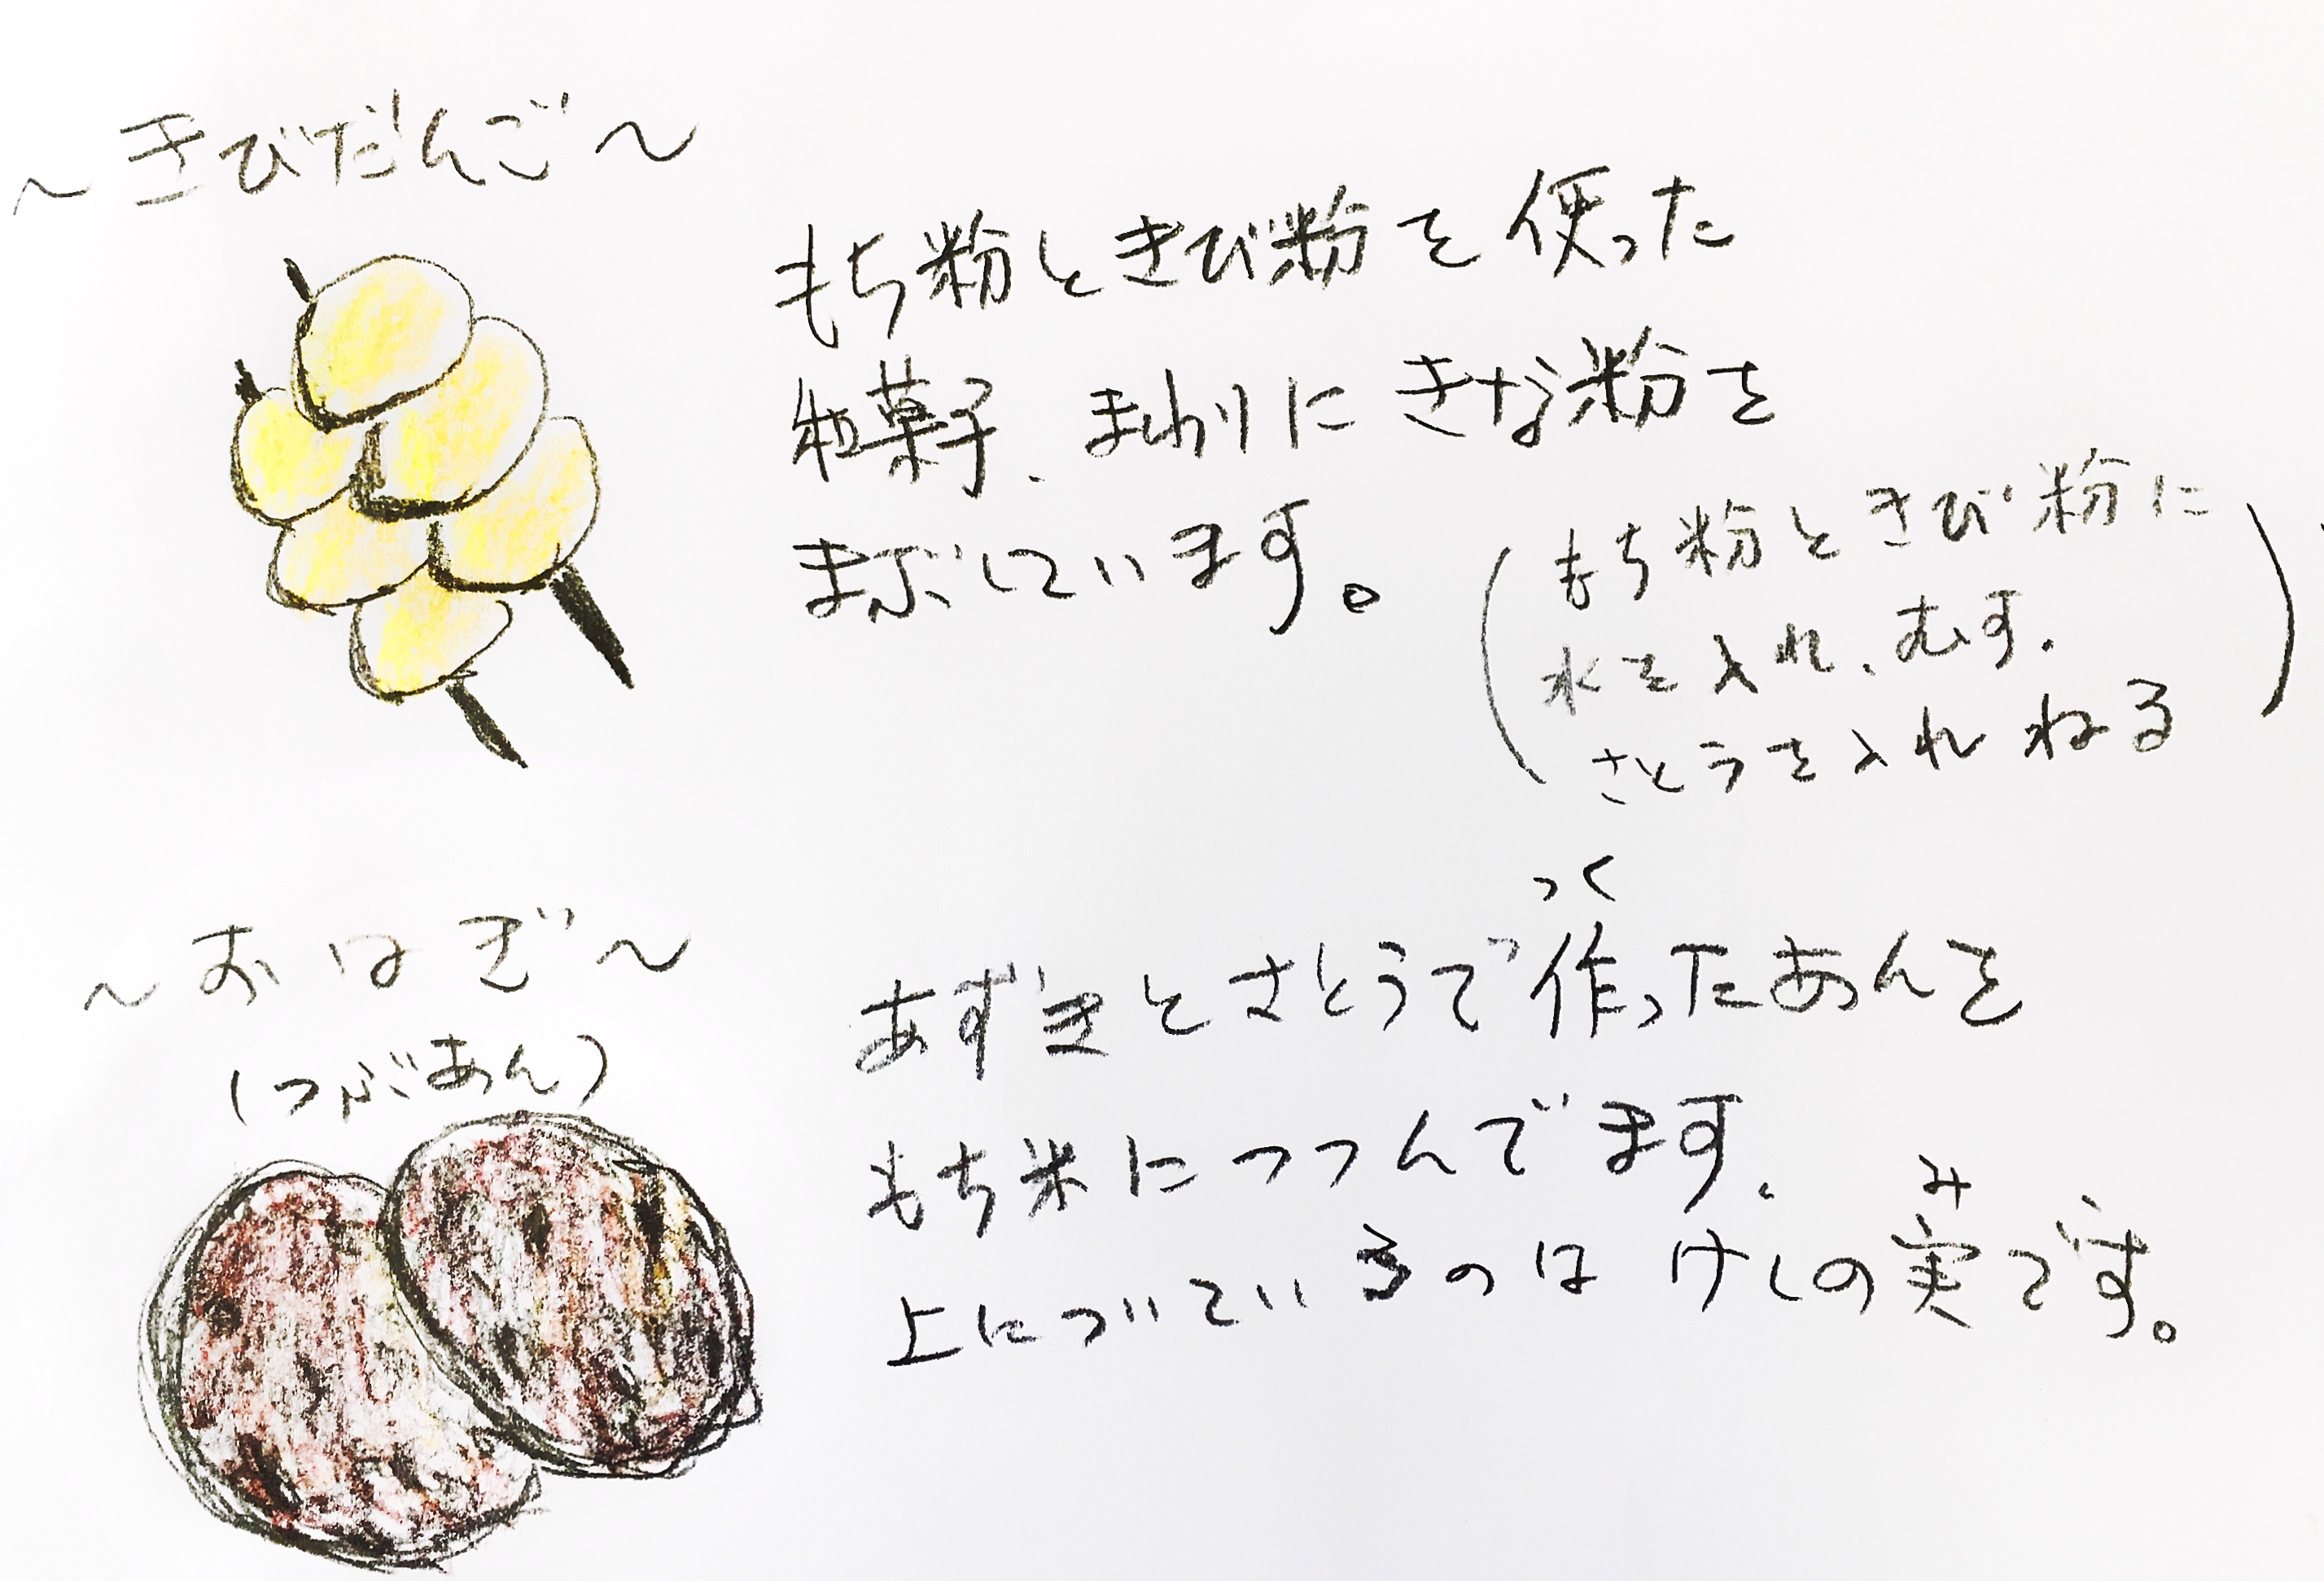 ~きびだんご~
もち粉ときび粉を使った
和菓子、まわりにきな粉を
まぶしています。
(もち粉ときび粉に
水を入れ、むす。
さとうを入れねる)
~おはぎ~
(つぶあん)
つく
あずきとさとうで作ったあんを
もち米につつんでます、
み
上についているのはけしの実です。